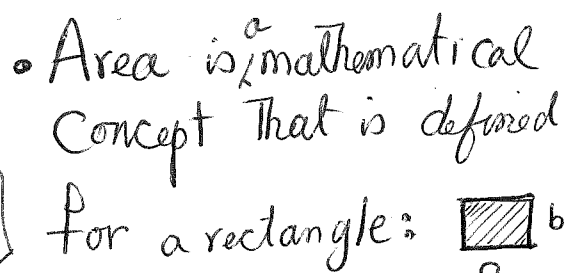 • Area is a mathematical
Concept That is defined
for a rectangle: b
a